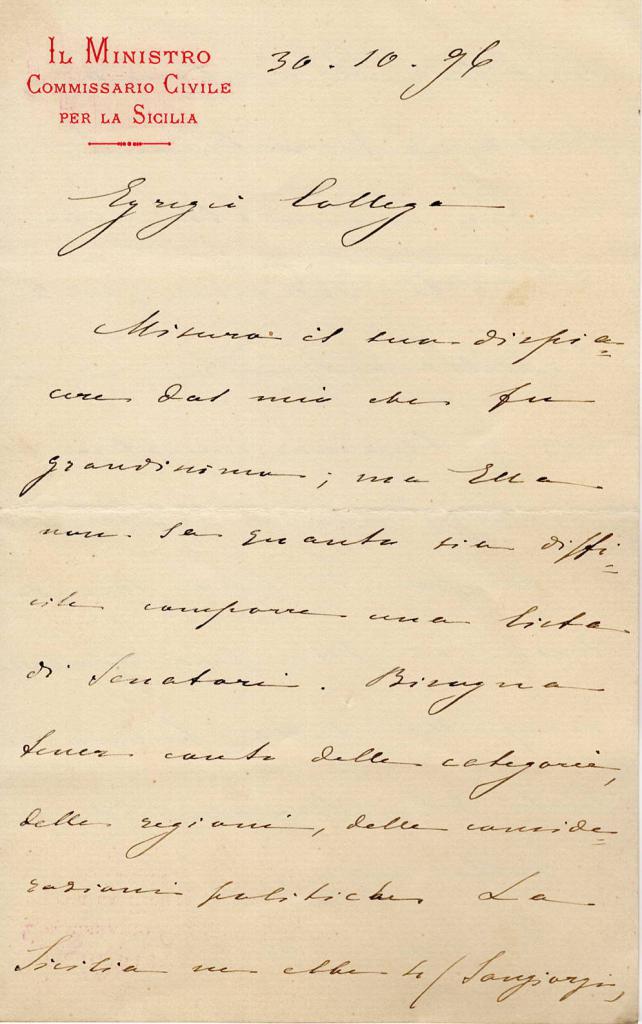 IL MINISTRO
COMMISSARIO CIVILE
PER LA SICILIA
30. 10. 96
Egregio Collega
Misuro il suo dispia=
cere dal mio che fu
grandissimo; ma Ella
non sa quanto sia diffi=
cile comporre una lista
di Senatori. Bisogna
tener conto delle categorie,
delle regioni, delle conside=
razioni politiche. La
Sicilia ne ebbe 4 (Sangiorgi,